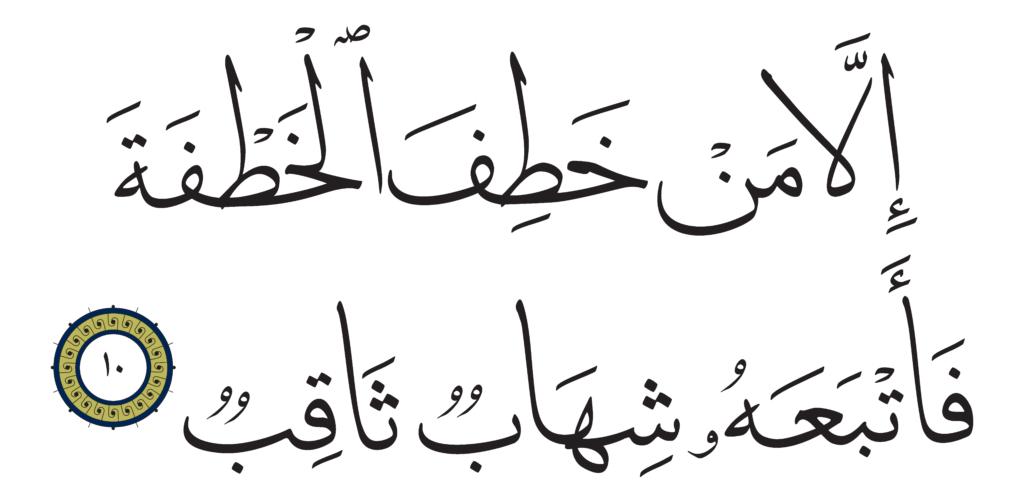 إِلَّا مَنْ خَطِفَ ٱلْخَطْفَةَ
فَأَتْبَعَهُۥ شِهَابٌ ثَاقِبٌ ١٠